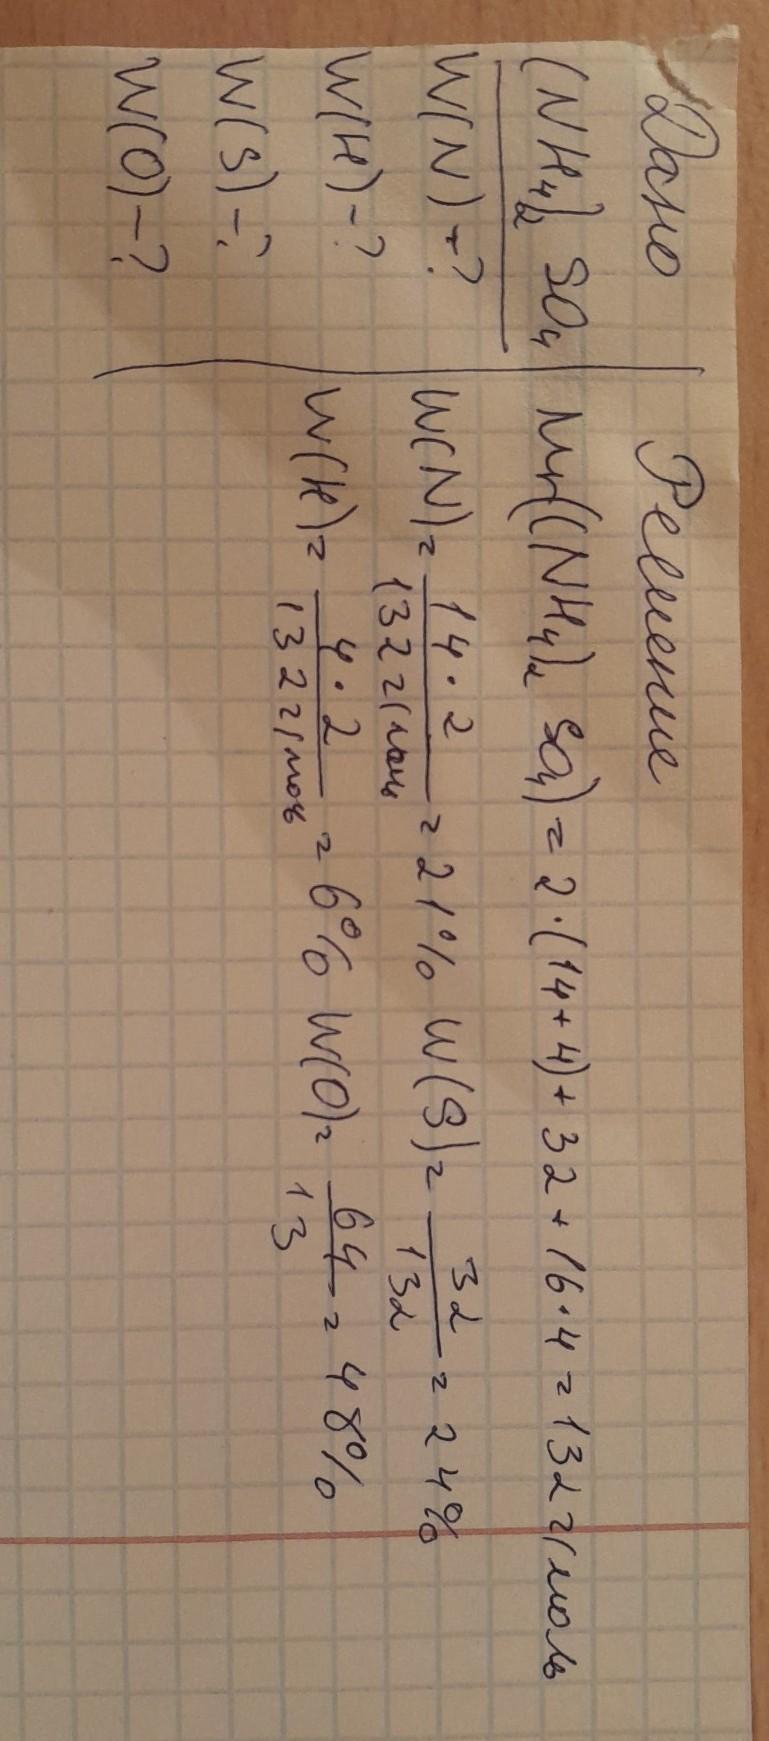 Дано
(NH4)2 SO4
W(N)-?
W(H)-?
W(S)-?
W(O)-?
Решение
Mr((NH4)2 SO4) = 2·(14+4)+32+16·4=132г/моль
W(N)= 14·2 / 132г/моль = 21% W(S)= 32 / 132 = 24%
W(H)= 4·2 / 132г/моль = 6% W(O)= 64 / 13 = 48%